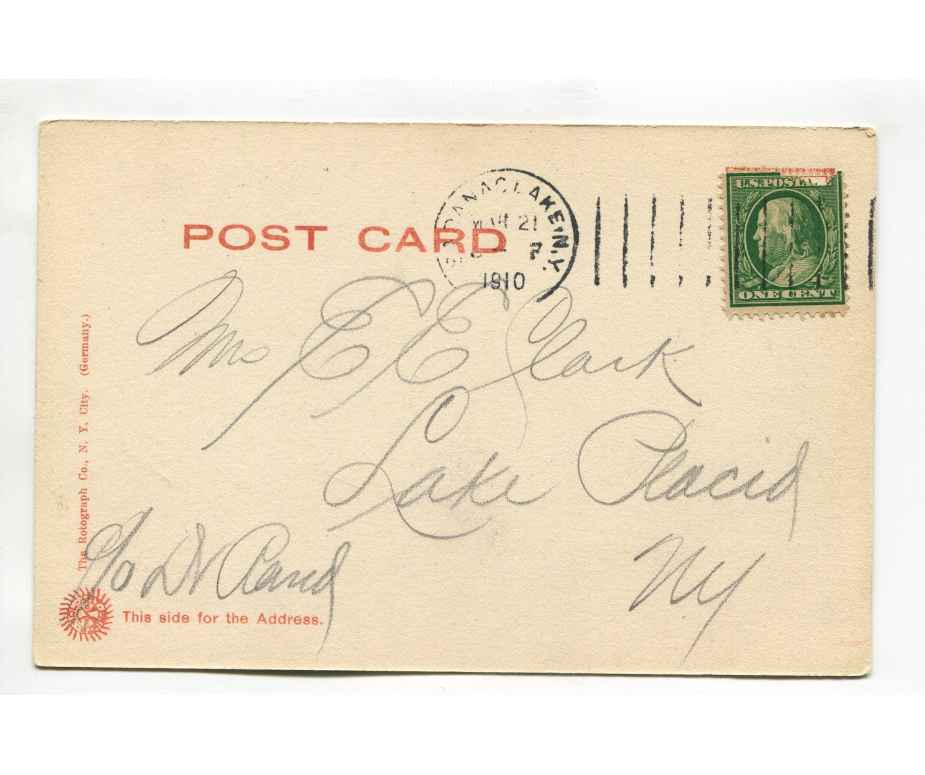 SARANAC LAKE, N.Y.
21
1910
U.S. POSTA
ONE CENT
POST CARD
Mrs E E Clark
Lake Placid
NY
c/o Dr Rand
The Rotograph Co., N. Y. City. (Germany.)
This side for the Address.